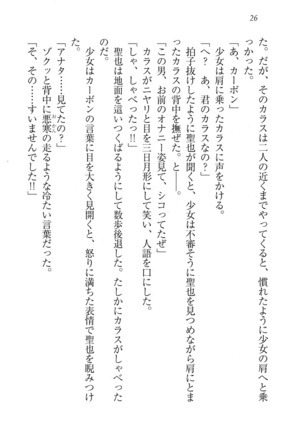 26
た。だが、そのカラスは二人の近くまでやってくると、慣れたように少女の肩へと乗
つかった。
「あ、カーボン」
少女は肩に乗ったカラスに声をかける。
「へ？　あ、君のカラスなの？」
拍子抜けしたように聖也が聞くと、少女は不審そうに聖也を見つめながら肩にとま
ったカラスの背中を撫ぜた。と──。
「この男、お前のオナニー姿見て、シコってたぜ」
カラスがニヤリと目を三日月形にして笑い、人語を口にした。
「しゃ、しゃべったっ!!」
聖也は地面を這いつくばるようにして数歩後退した。たしかにカラスがしゃべった
少女はカーボンの言葉に目を大きく見開くと、怒りに満ちた表情で聖也を睨みつけ
「アナタ……見てたの？」
ゾクッと背中に悪寒の走るような冷たい言葉だった。
「そ、その……すいませんでした!!」